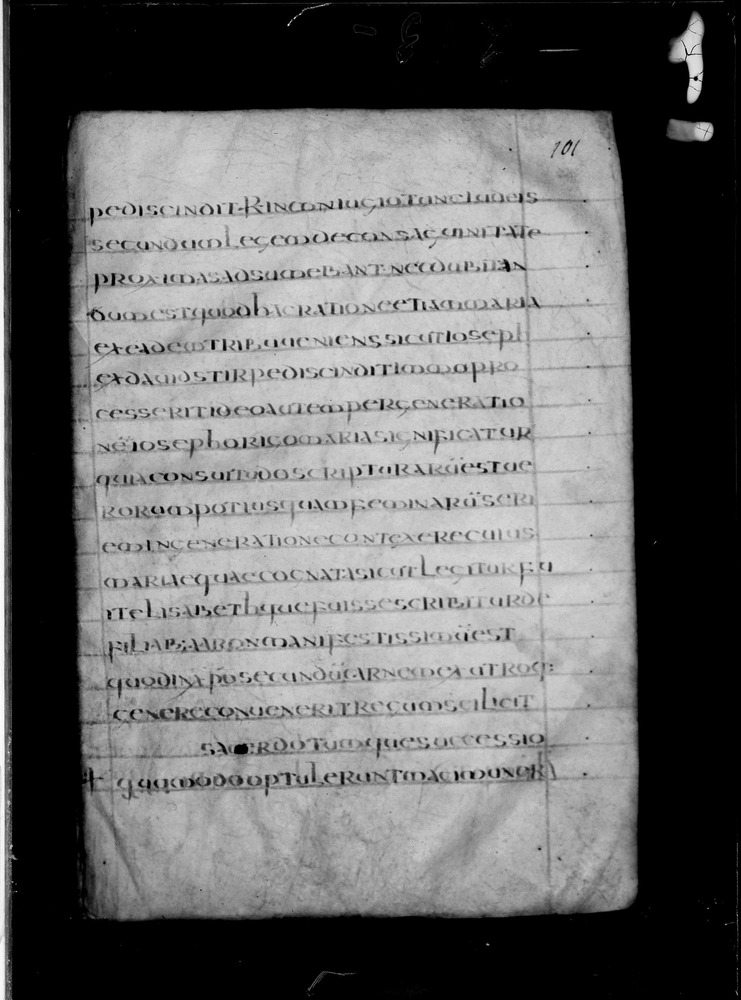 101
pediscindit. Rin coniugio tunc iudeis
secundum legem de consaguinitate
proximas adsumebant nec dubitan
dum est quod hac ratione etiam maria
ex eadem tribu ueniens sicut ioseph
ex dauid stirpe discindit immo pro
cesserit ideo autem per generatio
nē ioseph origo maria significatur
quia consuitudo scripturarū est ue
rorum potius quam feminarū seri
em in generatione contexere cuius
mariae quae cognata sicut legitur fu
it elisabeth quae fuisse scribitur de
filiabs aaron manifestissimū est
quod in xpo secundū carnem ex utroq:
genere conuenerit regum scilicit
sacerdotumque successio
+ quomodo optulerunt magi munera